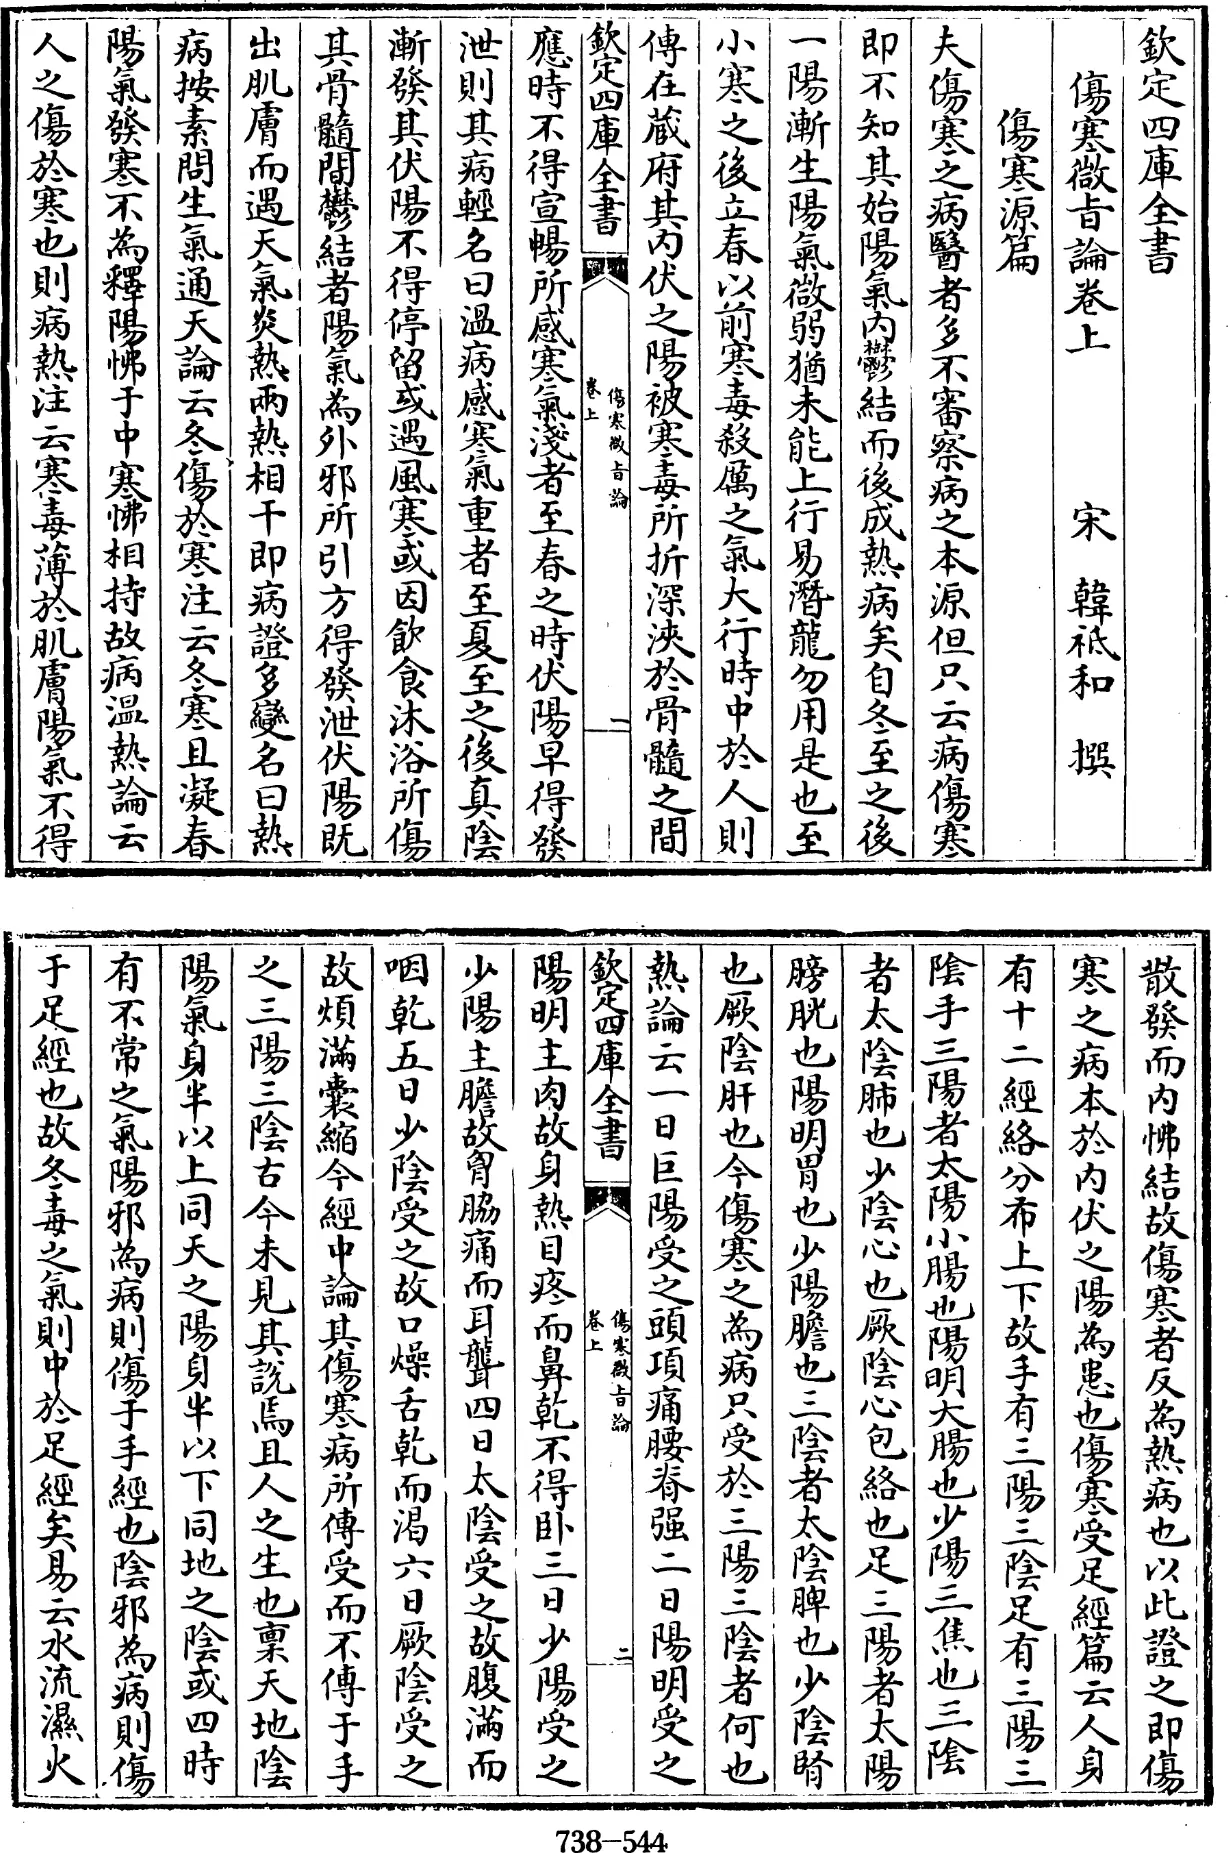 欽定四庫全書
傷寒微旨論卷上 宋 韓祗和 撰
傷寒源篇
夫傷寒之病醫者多不審察病之本源但只云病傷寒
即不知其始陽氣内鬱結而後成熱病矣自冬至之後
一陽漸生陽氣微弱猶未能上行易潛龍勿用是也至
小寒之後立春以前寒毒殺厲之氣大行時中於人則
傳在藏府其内伏之陽被寒毒所折深浹於骨髓之間
欽定四庫全書
傷寒微旨論
卷上
一
應時不得宣暢所感寒氣淺者至春之時伏陽早得發
泄則其病輕名曰温病感寒氣重者至夏至之後真陰
漸發其伏陽不得停留或遇風寒或因飲食沐浴所傷
其骨髓間鬱結者陽氣為外邪所引方得發泄伏陽既
出肌膚而遇天氣炎熱兩熱相干即病證多變名曰熱
病按素問生氣通天論云冬傷於寒注云冬寒且凝春
陽氣發寒不為釋陽怫于中寒怫相持故病温熱論云
人之傷於寒也則病熱注云寒毒薄於肌膚陽氣不得
散發而内怫結故傷寒者反為熱病也以此證之即傷
寒之病本於内伏之陽為患也傷寒受足經篇云人身
有十二經絡分布上下故手有三陽三陰足有三陽三
陰手三陽者太陽小腸也陽明大腸也少陽三焦也三陰
者太陰肺也少陰心也厥陰心包絡也足三陽者太陽
膀胱也陽明胃也少陽膽也三陰者太陰脾也少陰腎
也厥陰肝也今傷寒之為病只受於三陽三陰者何也
熱論云一日巨陽受之頭項痛腰脊强二日陽明受之
欽定四庫全書
傷寒微旨論
卷上
二
陽明主肉故身熱目疼而鼻乾不得卧三日少陽受之
少陽主膽故胷脇痛而耳聾四日太陰受之故腹滿而
咽乾五日少陰受之故口燥舌乾而渴六日厥陰受之
故煩滿囊縮今經中論其傷寒病所傳受而不傳于手
之三陽三陰古今未見其說焉且人之生也稟天地陰
陽氣身半以上同天之陽身半以下同地之陰或四時
有不常之氣陽邪為病則傷于手經也陰邪為病則傷
于足經也故冬毒之氣則中於足經矣易云水流濕火
738-544